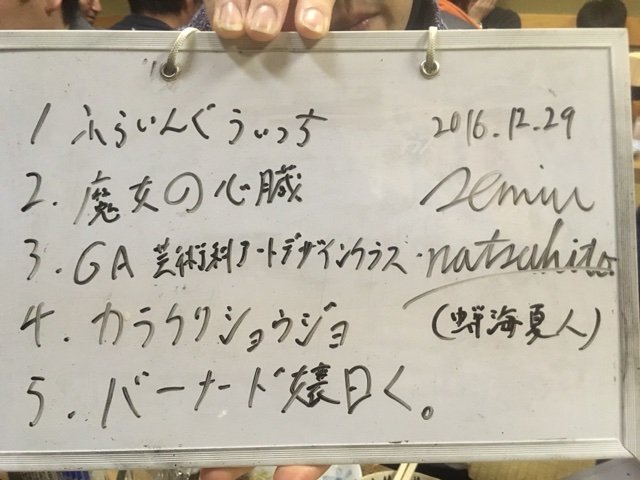 1 ふらいんぐうぃっち
2016.12.29
2. 魔女の心臓
semiu
3. GA 芸術科アートデザインクラス
natsuhito
4. カラクリショウジョ
(蝉海夏人)
5. バーナード嬢曰く。